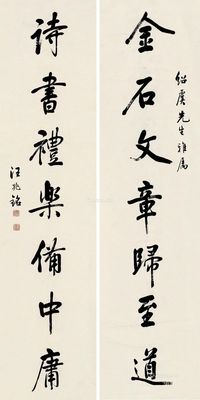 绍虞先生雅属
金石文章歸至道
詩書禮樂備中庸
汪兆銘